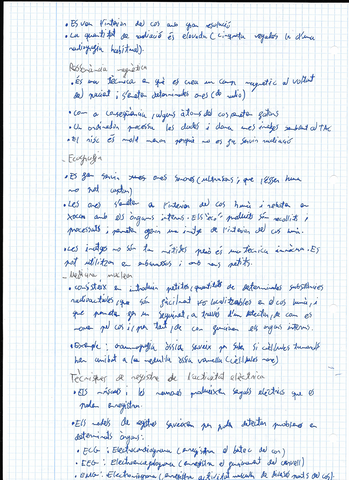 • Es veu l'interior del cos amb gran resolució
• La quantitat de radiació és elevada (cinquanta vegades la d'una
radiografia habitual).
Ressonància magnètica
• És una tècnica en què es crea un camp magnètic al voltant
del pacient i s'emeten determinades ones (de radio)
• Com a conseqüència, alguns àtoms del cos emeten
• Un ordinador processa les dades i dona unes imatges semblants al TAC
• El risc és molt menor perquè no es fa servir radiació
Ecografia
• Es fan servir unes ones sonores (ultrasons, que l'ésser humà
no pot captar)
• Les ones s'emeten a l'interior del cos humà i reboten en
xocar amb els òrgans interns. Els "ecos" produïts són recollits i
processats, i permeten obtenir una imatge de l'interior del cos humà.
• Les imatges no són tan nítides però és una tècnica innòcua. Es
pot utilitzar en embarassos i amb nens petits.
Medicina nuclear
• Consisteix en introduir petites quantitats de determinades substàncies
radioactives, que són fàcilment localitzables en el cos humà, i
que permeten fer un seguiment, a través d'un detector, de com es
mouen pel cos i, per tant, de com funcionen els òrgans interns.
• Exemple: gammagrafia òssia serveix per saber si cèl·lules tumorals
han arribat a la medul·la òssia vermella (cèl·lules mare)
Tècniques de registre de l'activitat elèctrica
• Els músculs i les neurones produeixen senyals elèctrics que es
poden enregistrar.
• Els mètodes de registre serveixen per poder detectar problemes en
determinats òrgans:
• ECG: Electrocardiograma (enregistra el batec del cor)
• EEG: Electroencefalograma (enregistra el funcionament del cervell)
• EMG: Electromiograma (enregistra activitat muscular de diverses parts del cos)